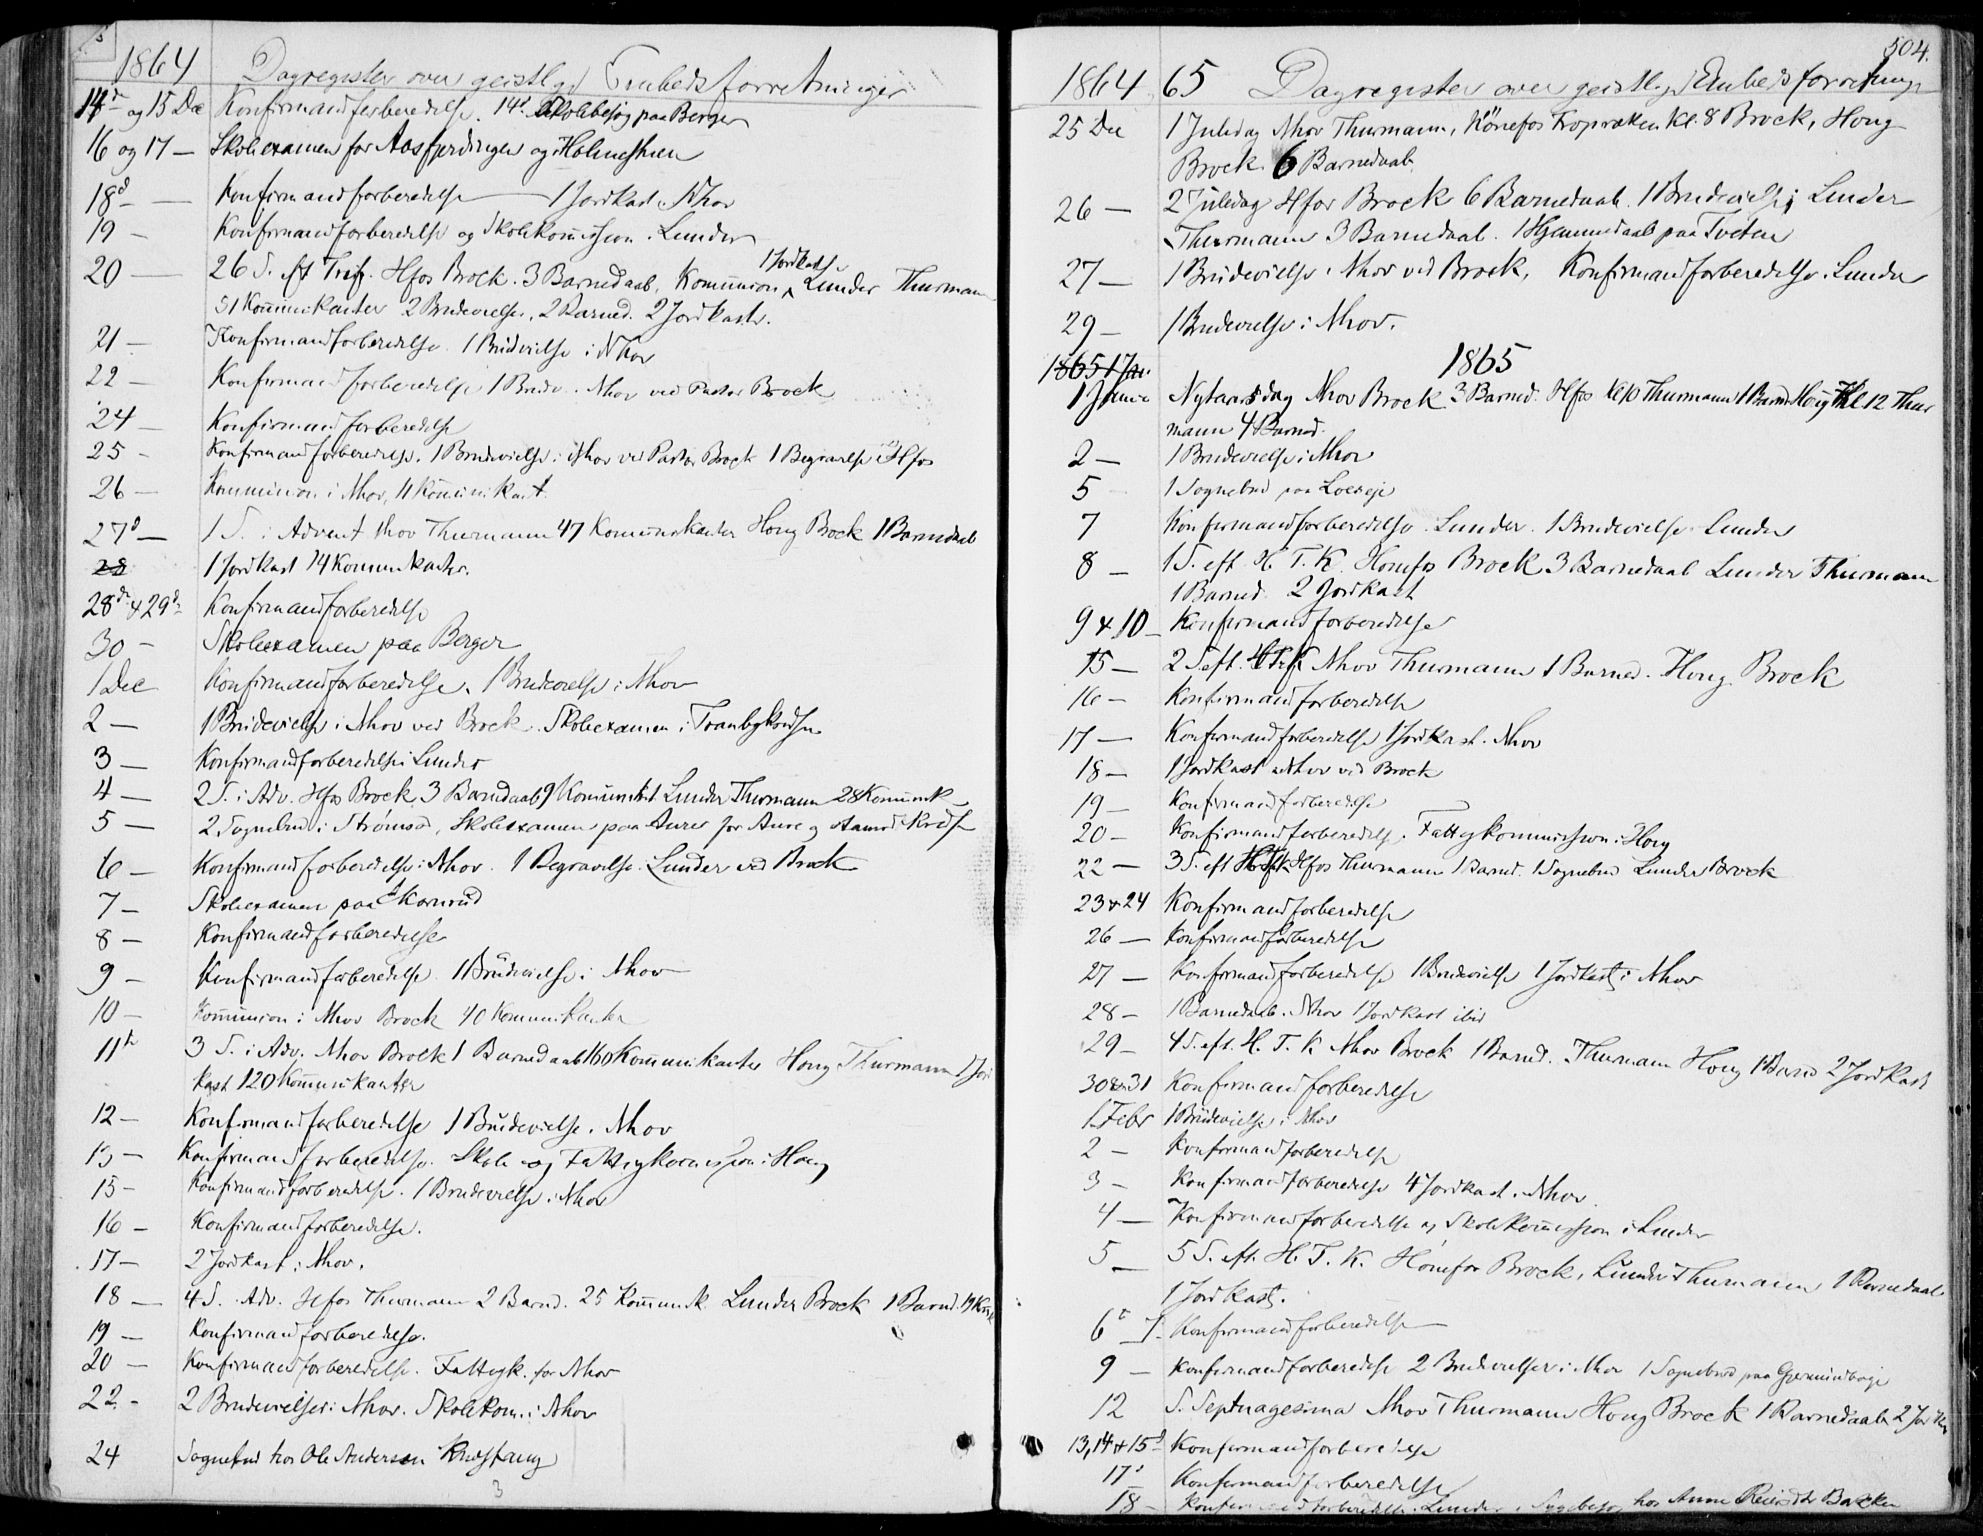 1864 Dagregister over geistlige Embedsforretninger
14d og 15 Dec Konfirmandforberedelse. 14d Skolebesøg paa Berger
16 og 17 — Skoleexamen for Aasfjerdingen og Holmeskien
18d — Konfirmandforberedelse — 1 Jordkast i Nhov
19 — Konfirmandforberedelse og Skolekom̄ission i Lunder
20 — 26 S. eft Tref. Hfos Brock. 3 Barnedaab, Kom̄union 1 Jordkast Lunder Thurmann
51 Kom̄unikanter 2 Brudevielser, 2 Barned. 2 Jordkast.
21 — Konfirmandforberedelse 1 Brudevielse i Nhov
22 — Konfirmandforberedelse 1 Brudev. i Nhov ved Pastor Brock
24 — Konfirmandforberedelse
25 — Konfirmandforberedelse. 1 Brudevielse i Nhov ved Pastor Brock 1 Begravelse i Hfos
26 — Kommunion i Nhov, 11 Kom̄unikant.
27d — 1 S. i Advent Nhov Thurmann 47 Kom̄unikanter Houg Brock 1 Barnedaab
28 1 Jordkast 14 Kommunikanter.
28d & 29d Konfirmandforberedelse
30 — Skoleexamen paa Berger
1 Dec Konfirmandforberedelse. 1 Brudevielse i Nhov
2 — 1 Brudevielse i Nhov ved Brock. Skoleexamen i Tranbykredsen
3 — Konfirmandforberedelse i Lunder
4 — 2 S. i Adv. Hfos Brock 3 Barnedaab 9 Kom̄unikt Lunder Thurmann 28 Kom̄unik
5 — 2 Sognebud i Strømsø, Skoleexamen paa Aure for Aure og Kreds
6 — Konfirmandforberedelse i Nhov. 1 Begravelse i Lunder ved Brock
7 — Skoleexamen paa Skarrud
8 — Konfirmandforberedelse
9 — Konfirmandforberedelse 1 Brudevielse i Nhov
10 — Kom̄union i Nhov Brock 40 Kommunikanter
11t 3 S. i Adv. Nhov Brock 1 Barnedaab 160 Kom̄unikanter Houg Thurmann 1 Jord
kast 120 Kom̄unikanter
12 — Konfirmandforberedelse 1 Brudevielse i Nhov
13 — Konfirmandforberedelse. Skole og Fattigkom̄ission i Houg
15 — Konfirmandforberedelse. 1 Brudevielse i Nhov
16 — Konfirmandforberedelse.
17 — 2 Jordkast i Nhov.
18 — 4 S. Adv. Hfos Thurmann 2 Barnd. 25 Kom̄unik Lunder Brock 1 Barnd.
19 — Konfirmandforberedelse.
20 — Konfirmandforberedelse. Fattigk. for Nhov
22 — 2 Brudevielser i Nhov. Skolekom. i Nhov
24 Sognebud hos Ole Andersen
3
504.
1864 65 Dagregister over geistlige Embedsforretninger
25 Dec 1 Juledag Nhov Thurmann, Hönefos Kl. 8 Brock, Houg
Brock 6 Barnedaab
26 — 2 Juledag Hfos Brock 6 Barnedaab. 1 Brudevielse i Lunder
Thurmann 3 Barnedaab. 1 Hjemmedaab paa Tveten
27 — 1 Brudevielse i Nhov ved Brock, Konfirmandforberedelse i Lunder
29 — 1 Brudevielse i Nhov.
1865 1 Jan. 1865
1 Janu Nytaarsdag Nhov Brock 3 Barned. Hfos kl 10 Thurmann 1 Barn Houg Kl 12 Thur
mann 4 Barned.
2 — 1 Brudevielse i Nhov
5 1 Sognebud paa
7 Konfirmandforberedelse i Lunder. 1 Brudevielse i Lunder
8 — 1 S. eft H. T. K. Hönefos Brock 3 Barnedaab Lunder Thurmann
1 Barned. 2 Jordkast
9 & 10 — Konfirmandforberedelse
15 — 2 S eft. H Tr K Nhov Thurmann 1 Barned. Houg Brock
16 — Konfirmandforberedelse
17 — Konfirmandforberedelse 1 Jordkast i Nhov
18 — 1 Jordkast i Nhov ved Brock
19 — Konfirmandforberedelse
20 — Konfirmandforberedelse. Fattigkommission i Houg
22 — 3 S. eft H T K Hfos Thurmann 1 Barned. 1 Sognebud Lunder Brock
23 & 24 Konfirmandforberedelse
26 — Konfirmandforberedelse
27 — Konfirmandforberedelse 1 Brudevielse 1 Jordkast i Nhov
28 — 1 Barnedaab i Nhov 1 Jordkast ibid
29 — 4 S. eft. H. T. K Nhov Brock 1 Barnd. Thurmann Houg 1 Barnd 2 Jordkast
30 & 31 Konfirmandforberedelse
1 Febr 1 Brudevielse i Nhov
2 — Konfirmandforberedelse
3 — Konfirmandforberedelse 4 Jordkast i Nhov
4 — Konfirmandforberedelse og Skolekom̄ission i Lunder
5 — 5 S. eft. H. T. K. Hönefos Brock, Lunder Thurmann 1 Barnedaab
1 Jordkast.
6t 7. Konfirmandforberedelse
9 — Konfirmandforberedelse 2 Brudevielser i Nhov 1 Sognebud paa Gjermundboe
12 S. Septuagesima Nhov Thurmann Houg Brock 1 Barnedaab 2 Jordkast
13, 14 & 15d Konfirmandforberedelse
17d Konfirmandforberedelse
18 — Konfirmandforberedelse i Lunder. Sygebesøg hos Anne Reiersdtr Bakken